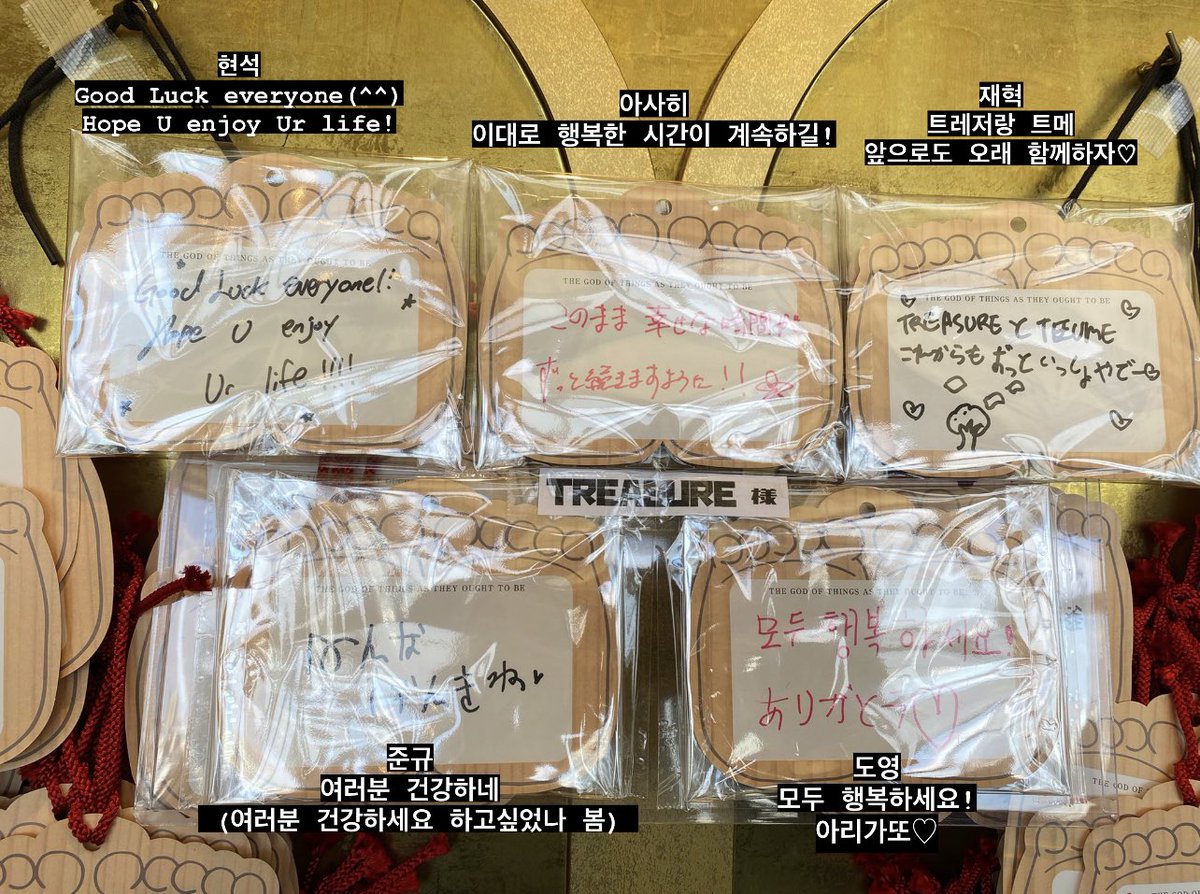 현석
Good Luck everyone(^^)
Hope U enjoy Ur life!
아사히
이대로 행복한 시간이 계속하길!
재혁
트레저랑 트메
앞으로도 오래 함께하자♡
THE GOD OF THINGS AS THEY OUGHT TO BE
Good Luck everyone!!
Hope U enjoy
Ur life!!!!
THE GOD OF THINGS AS THEY OUGHT TO BE
このまま 幸せな時間が
ずっと続きますように!!
THE GOD OF THINGS AS THEY OUGHT TO BE
TREASURE と TEUME
これからもずっといっしょやでー
TREASURE 様
THE GOD OF THINGS AS THEY OUGHT TO BE
げんき
THE GOD OF THINGS AS THEY OUGHT TO BE
모두 행복하세요!
ありがとう♡
준규
여러분 건강하네
(여러분 건강하세요 하고싶었나 봄)
도영
모두 행복하세요!
아리가또♡
THE GOD OF